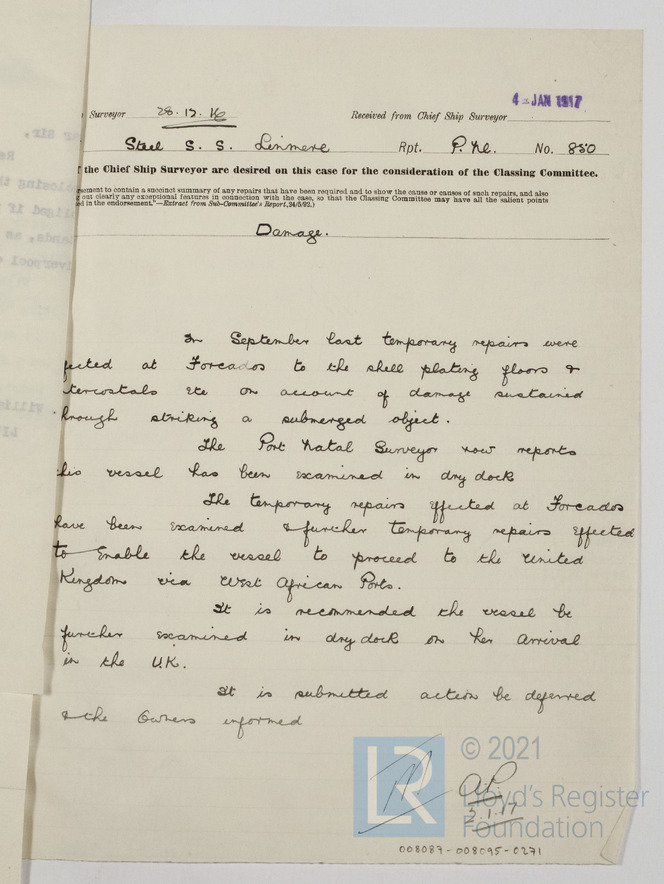 4 - JAN 1917
Surveyor 28.12.16 Received from Chief Ship Surveyor
Steel S. S. Linmere Rpt. P. Nl. No. 850
the Chief Ship Surveyor are desired on this case for the consideration of the Classing Committee.
sement to contain a succinct summary of any repairs that have been required and to show the cause or causes of such repairs, and also
out clearly any exceptional features in connection with the case, so that the Classing Committee may have all the salient points
ed in the endorsement."—Extract from Sub-Committee's Report, 24/5/92.)
Damage.
In September last temporary repairs were
fected at Forcados to the shell plating floors &
tercostals etc on account of damage sustained
hrough striking a submerged object.
The Port Natal Surveyor now reports
his vessel has been examined in dry dock
The temporary repairs effected at Forcados
have been examined & further temporary repairs effected
to enable the vessel to proceed to the United
Kingdom via West African Ports.
It is recommended the vessel be
further examined in dry dock on her arrival
in the U.K.
It is submitted action be deferred
& the Owners informed
LR
© 2021
Lloyd's Register
Foundation
3.1.17
008087-008095-0271